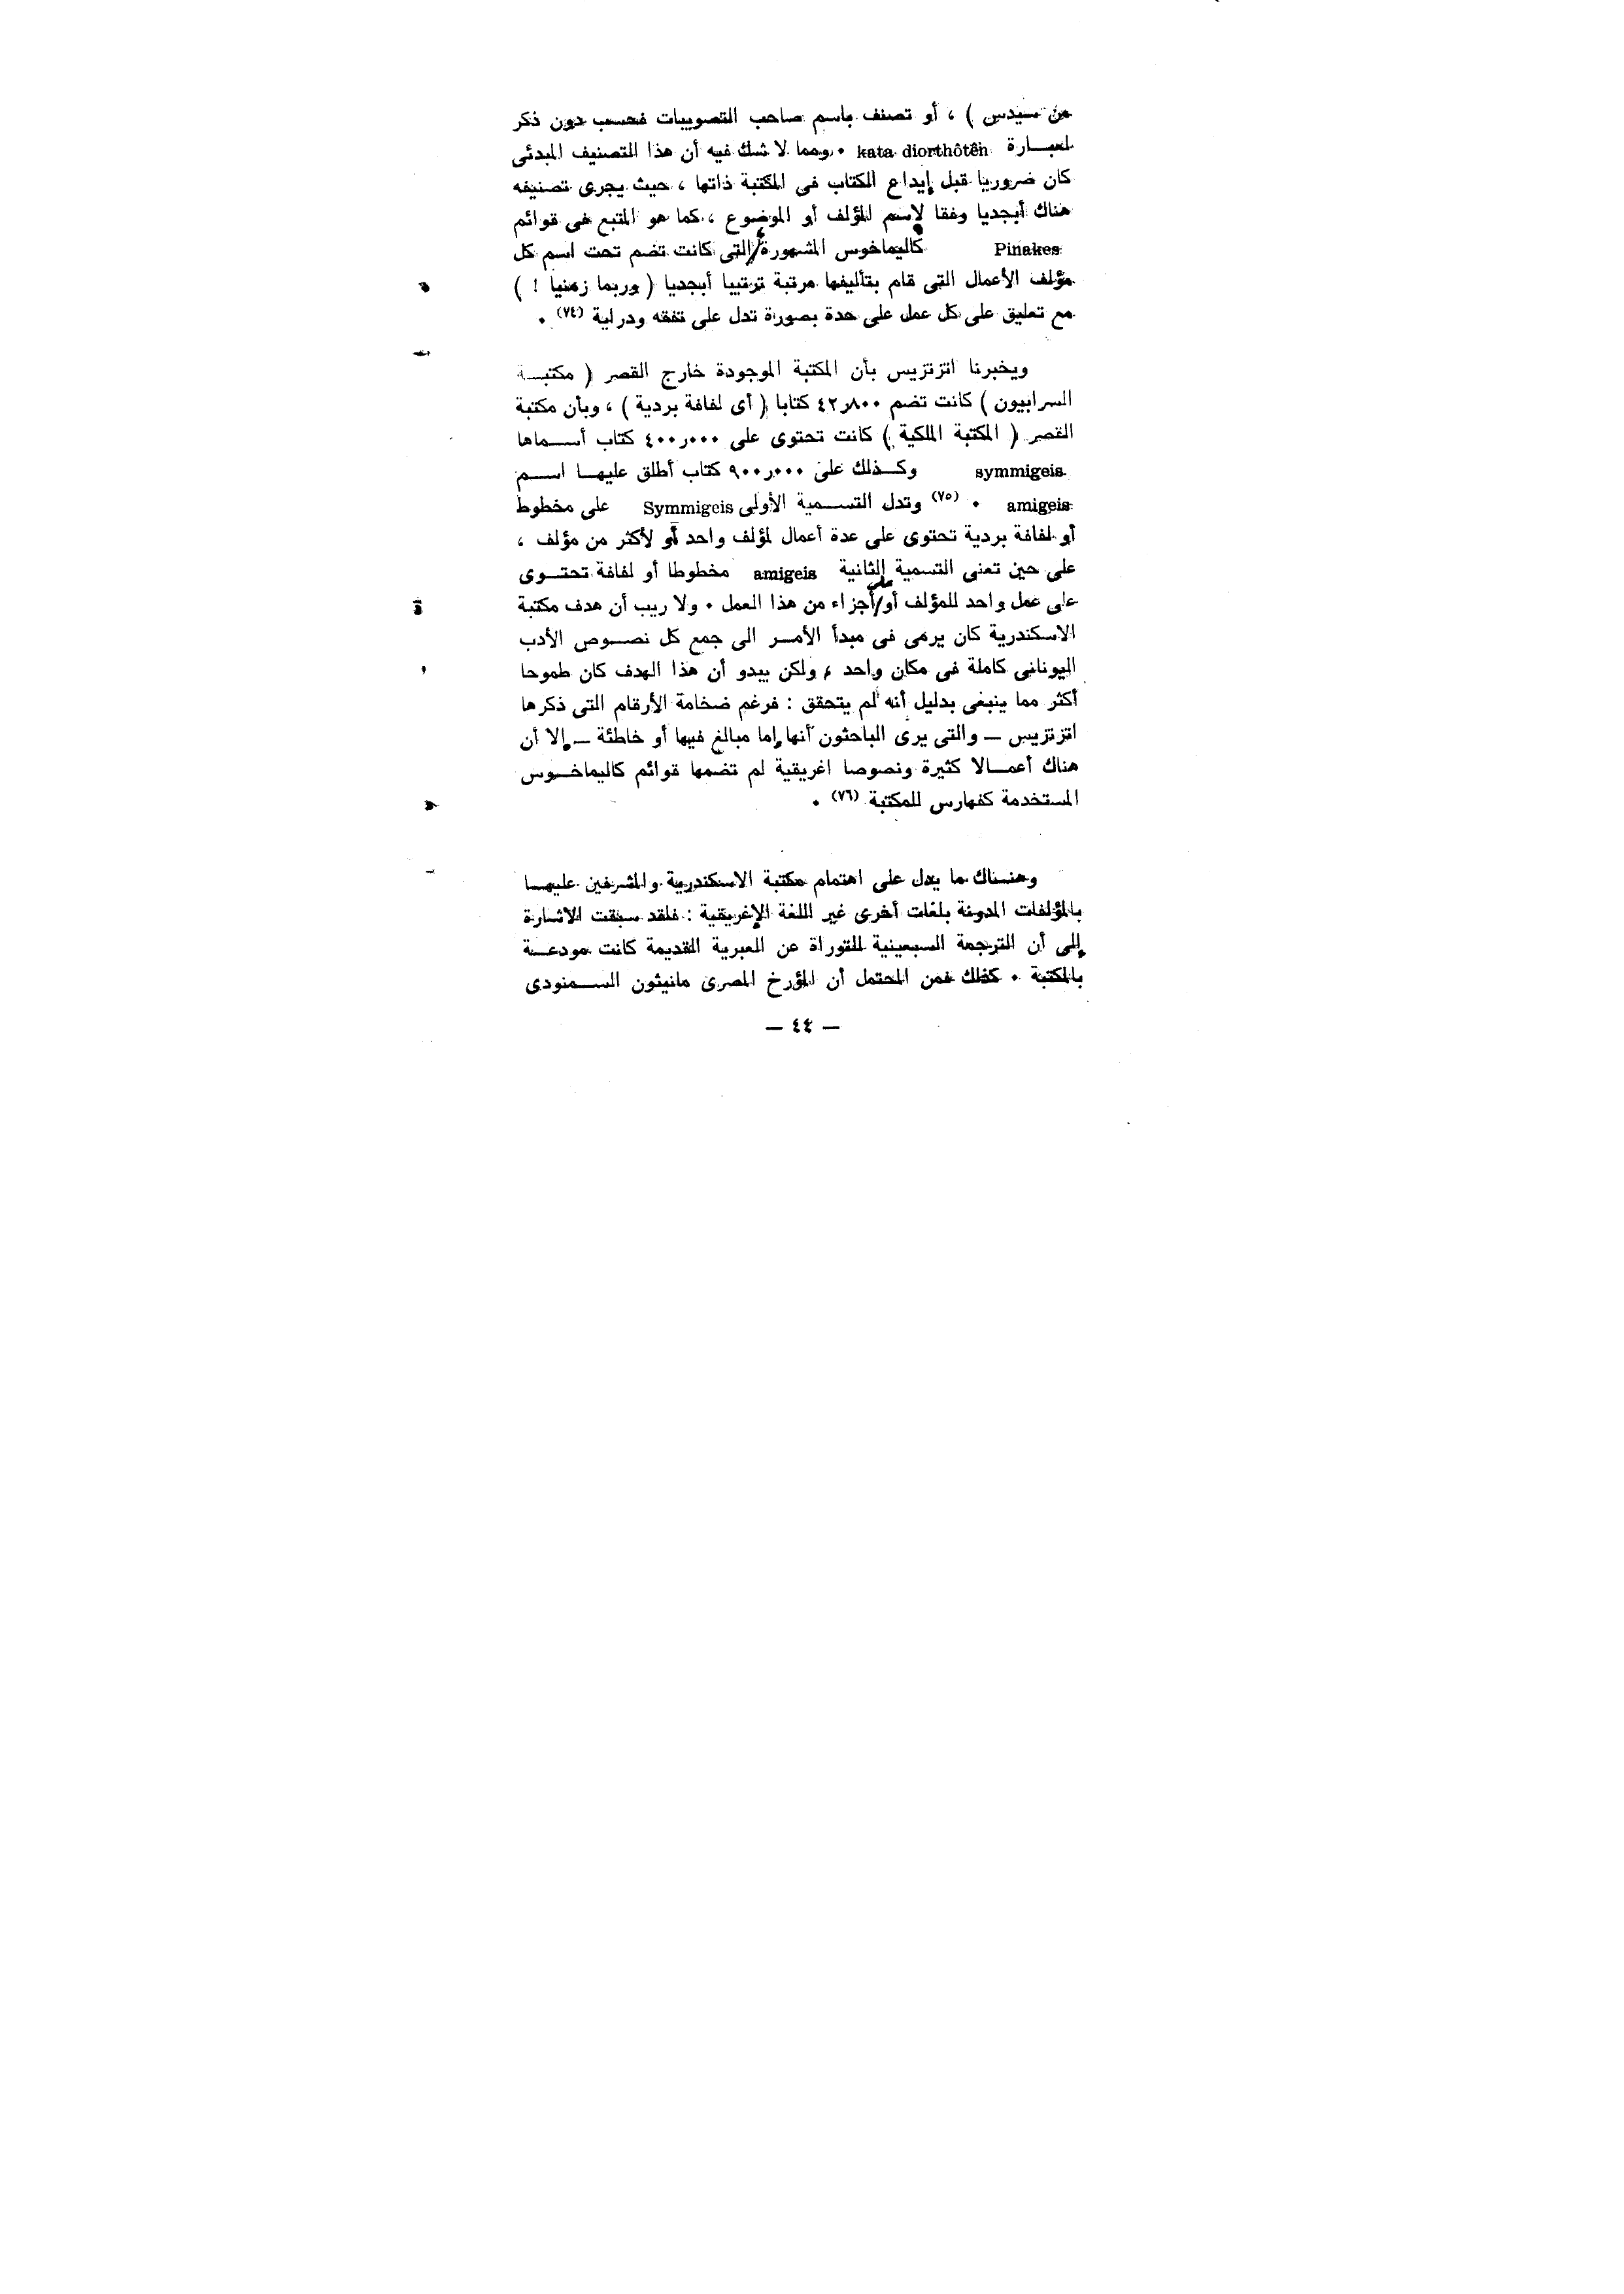 من سيدس ) ، أو تصنف باسم صاحب التصويبات فحسب دون ذكر
لعبـــارة kata diorthôtên ٠ ومما لا شك فيه أن هذا التصنيف المبدئى
كان ضروريا قبل إيداع الكتاب فى المكتبة ذاتها ، حيث يجرى تصنيفه
هناك أبجديا وفقا لاسم المؤلف أو الموضوع ، كما هو المتبع فى قوائم
Pinakes كاليماخوس المشهورة التى كانت تضم تحت اسم كل
مؤلف الأعمال التى قام بتأليفها مرتبة ترتيبا أبجديا ( وربما زمنيا ! )
مع تعليق على كل عمل على حدة بصورة تدل على تفقه ودراية (٧٤) ٠
ويخبرنا اتزتزيس بأن المكتبة الموجودة خارج القصر ( مكتبــة
السرابيون ) كانت تضم ٤٢ر٨٠٠ كتابا ( أى لفافة بردية ) ، وبأن مكتبة
القصر ( المكتبة الملكية ) كانت تحتوى على ٤٠٠ر٠٠٠ كتاب أســـماها
symmigeis وكــذلك على ٩٠٠ر٠٠٠ كتاب أطلق عليهــا اســـم
amigeis ٠ (٧٥) وتدل التســـمية الأولى Symmigeis على مخطوط
أو لفافة بردية تحتوى على عدة أعمال لمؤلف واحد أو لأكثر من مؤلف ،
على حين تعنى التسمية الثانية amigeis مخطوطا أو لفافة تحتــوى
على عمل واحد للمؤلف أو/على أجزاء من هذا العمل ٠ ولا ريب أن هدف مكتبة
الاسكندرية كان يرمى فى مبدأ الأمـــر الى جمع كل نصــوص الأدب
اليونانى كاملة فى مكان واحد ، ولكن يبدو أن هذا الهدف كان طموحا
أكثر مما ينبغى بدليل أنه لم يتحقق : فرغم ضخامة الأرقام التى ذكرها
اتزتزيس ــ والتى يرى الباحثون أنها إما مبالغ فيها أو خاطئة ــ إلا أن
هناك أعمـــالا كثيرة ونصوصا اغريقية لم تضمها قوائم كاليماخــوس
المستخدمة كفهارس للمكتبة (٧٦) ٠
وهنـــاك ما يدل على اهتمام مكتبة الاسكندرية والمشرفين عليهــا
بالمؤلفات المدونة بلغات أخرى غير اللغة الإغريقية : فلقد سبقت الاشارة
إلى أن الترجمة السبعينية للتوراة عن العبرية القديمة كانت مودعــة
بالمكتبة ٠ كذلك فمن المحتمل أن المؤرخ المصرى مانيثون الســـمنودى
— ٤٤ —